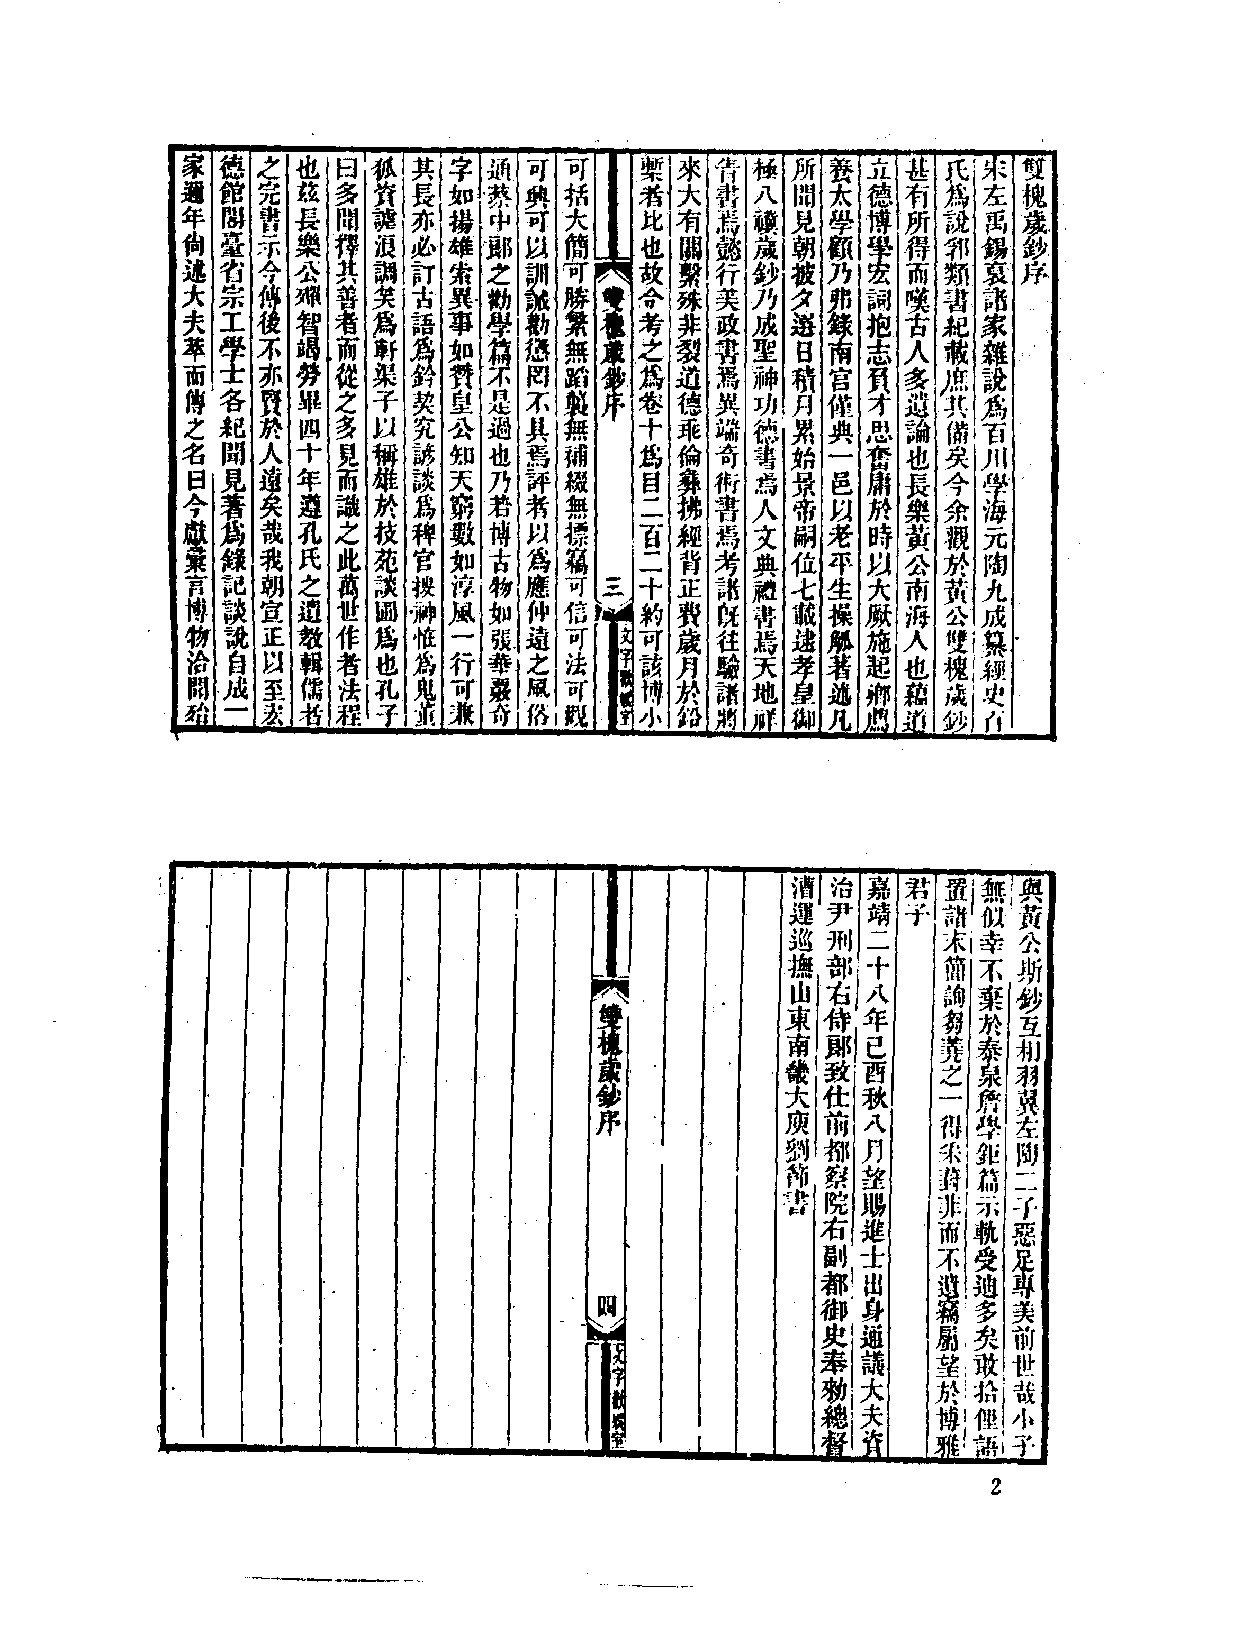 雙槐歲鈔序
宋左禹錫裒諸家雜說爲百川學海元陶九成纂經史百
氏爲說郛類書紀載庶其備矣今余觀於黃公雙槐歲鈔
甚有所得而嘆古人多遺論也長樂黃公南海人也蘊道
立德博學宏詞抱志負才思奮庸於時以大厥施起鄉薦
養太學顧乃弗錄南官僅典一邑以老平生操觚著述凡
所聞見朝披夕選日積月累始景帝嗣位七載逮孝皇御
極八禩歲鈔乃成聖神功德書焉人文典禮書焉天地祥
眚書焉懿行美政書焉異端奇術書焉考諸旣往驗諸將
來大有關繫殊非裂道德乖倫彝拂經背正費歲月於鉛
槧者比也故今考之爲卷十爲目二百二十約可該博小
雙槐歲鈔序
三
文字歡娛室
可括大簡可勝繁無蹈襲無補綴無摽竊可信可法可觀
可興可以訓誡勸懲罔不具焉評者以爲應仲遠之風俗
通蔡中郞之勸學篇不是過也乃若博古物如張華覈奇
字如揚雄索異事如贊皇公知天窮數如淳風一行可兼
其長亦必訂古語爲鈐契究諺談爲稗官搜神惟爲鬼董
狐資謔浪調笑爲軒渠子以稱雄於技苑談圃爲也孔子
曰多聞擇其善者而從之多見而識之此萬世作者法程
也茲長樂公殫智竭勞畢四十年遵孔氏之遺敎輯儒者
之完書示今傳後不亦賢於人遠矣哉我朝宣正以至宏
德館閣臺省宗工學士各紀聞見著爲錄記談說自成一
家邇年尙述大夫萃而傳之名曰今獻彙言博物洽聞殆
與黃公斯鈔互相羽翼左陶二子惡足專美前世哉小子
無似幸不棄於泰泉詹學鉅篇示軌受迪多矣敢拾俚語
置諸末簡詢芻蕘之一得采葑菲而不遺竊屬望於博雅
君子
嘉靖二十八年己酉秋八月望賜進士出身通議大夫資
治尹刑部右侍郞致仕前都察院右副都御史奉勑總督
漕運巡撫山東南畿大庾劉節書
雙槐歲鈔序
四
文字歡娛室
2